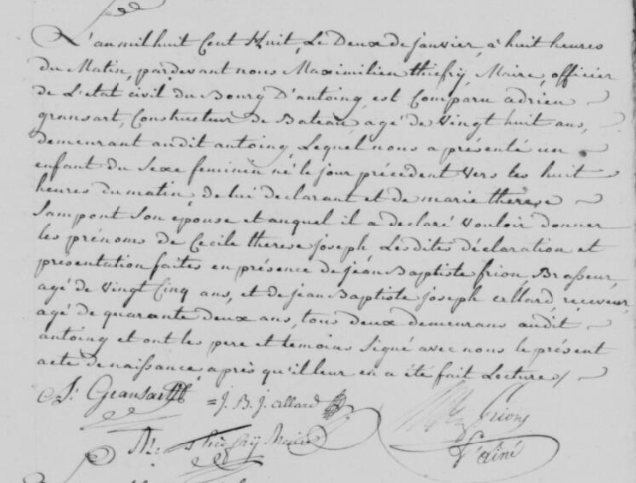 L'an mil huit Cent Huit, Le Deux de janvier, à huit heures
du Matin, pardevant nous Maximilien thiefry, Maire, officier
de L'état civil du Bourg D'antoing, est Comparu adrien
gransart, Constructeur de Bateau agé de Vingt huit ans,
demeurant audit antoing, Lequel nous a présenté un
enfant du Sexe feminin né le jour précédent Vers les huit
heures du matin, de lui déclarant et de marie therese
Sampont Son épouse et auquel il a déclaré Vouloir donner
les prénoms de Cecile therese joseph Lesdites déclaration et
présentation faites en présence de jean Baptiste frion Brasseur,
agé de Vingt Cinq ans, et de jean Baptiste joseph allard, receveur,
agé de quarante deux ans, tous deux demeurans audit
antoing et ont les pere et temoins Signé avec nous le présent
acte de naissance, après qu'il leur en a été fait Lecture /
= J. B. J. allard
frion
L'ainé